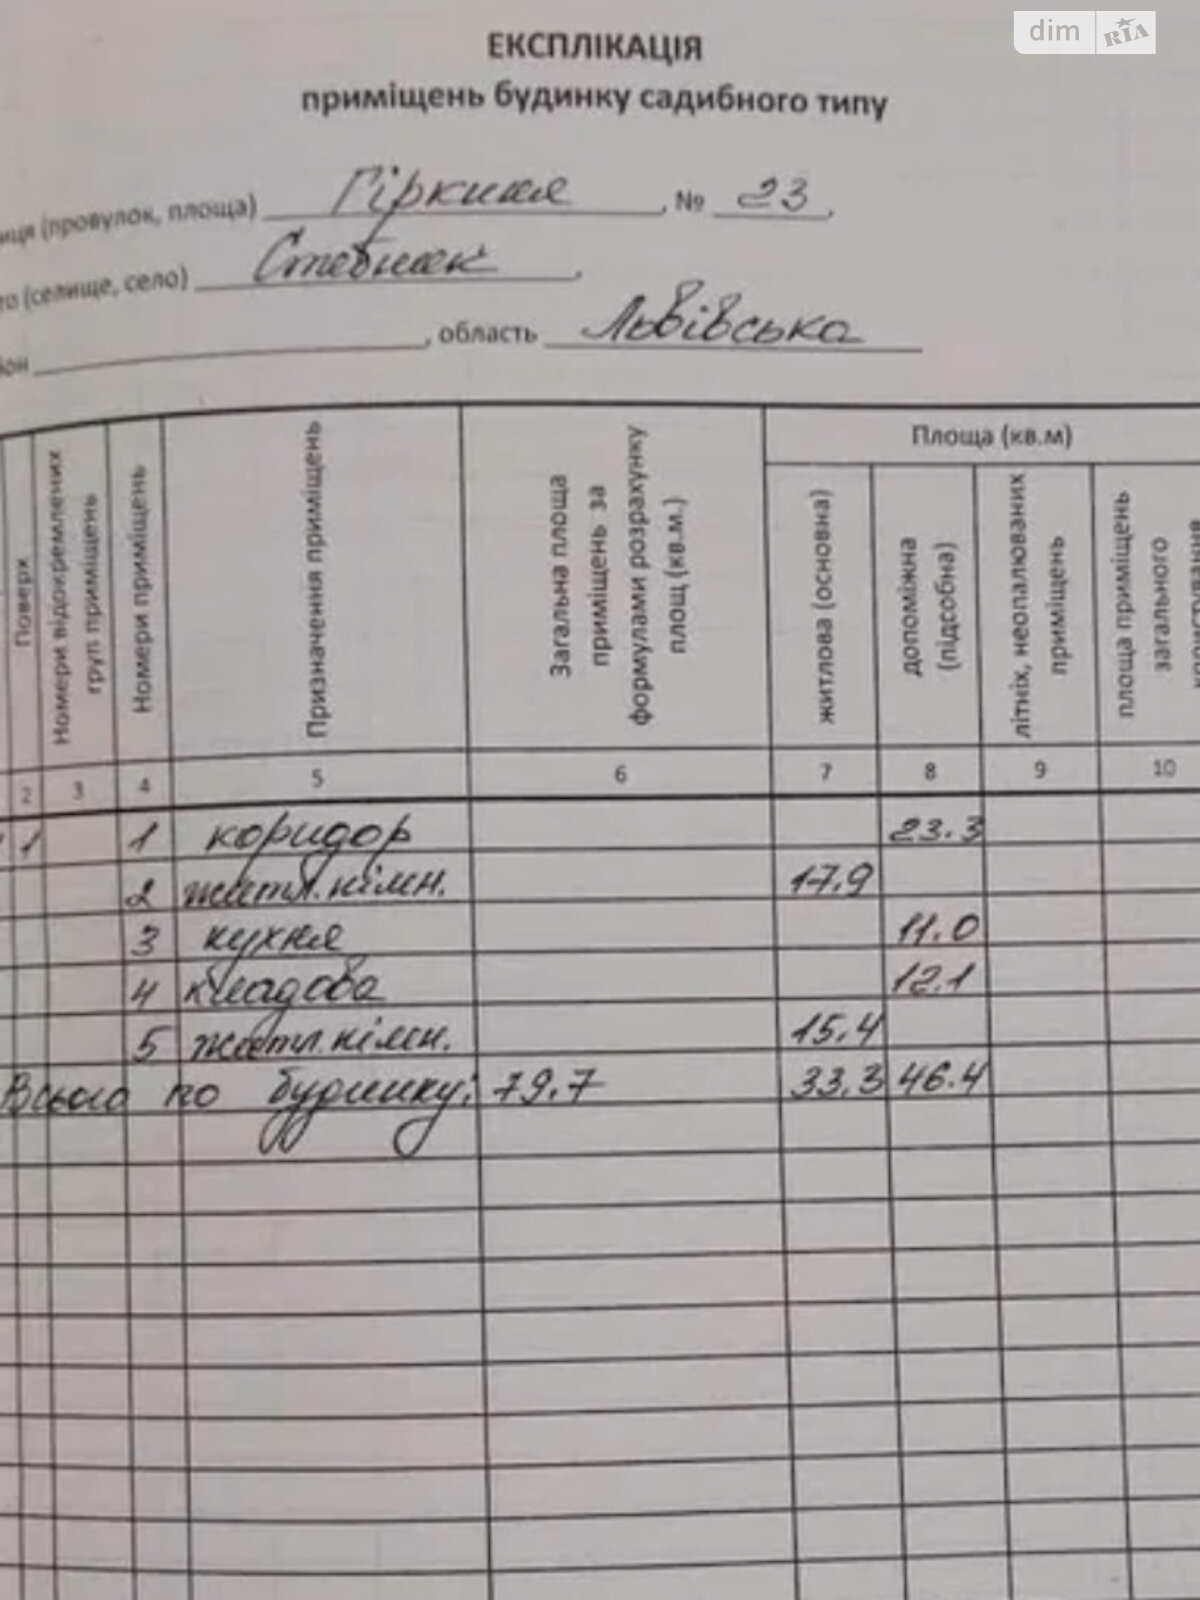 dim RIA
ЕКСПЛІКАЦІЯ
приміщень будинку садибного типу
иця (провулок, площа) Гіркиля, № 23,
то (селище, село) Стебник,
он , область Львівська
Поверх
Номери відокремлених груп приміщень
Номери приміщень
Призначення приміщень
Загальна площа приміщень за формулами розрахунку площ (кв.м.)
Площа (кв.м)
житлова (основна)
допоміжна (підсобна)
літніх, неопалюваних приміщень
площа приміщень загального користування
2 3 4 5 6 7 8 9 10
1 1 коридор 23.3
2 житл.кімн. 17.9
3 кухня 11.0
4 кладова 12.1
5 житл.кімн. 15.4
Всього по будинку: 79.7 33.3 46.4